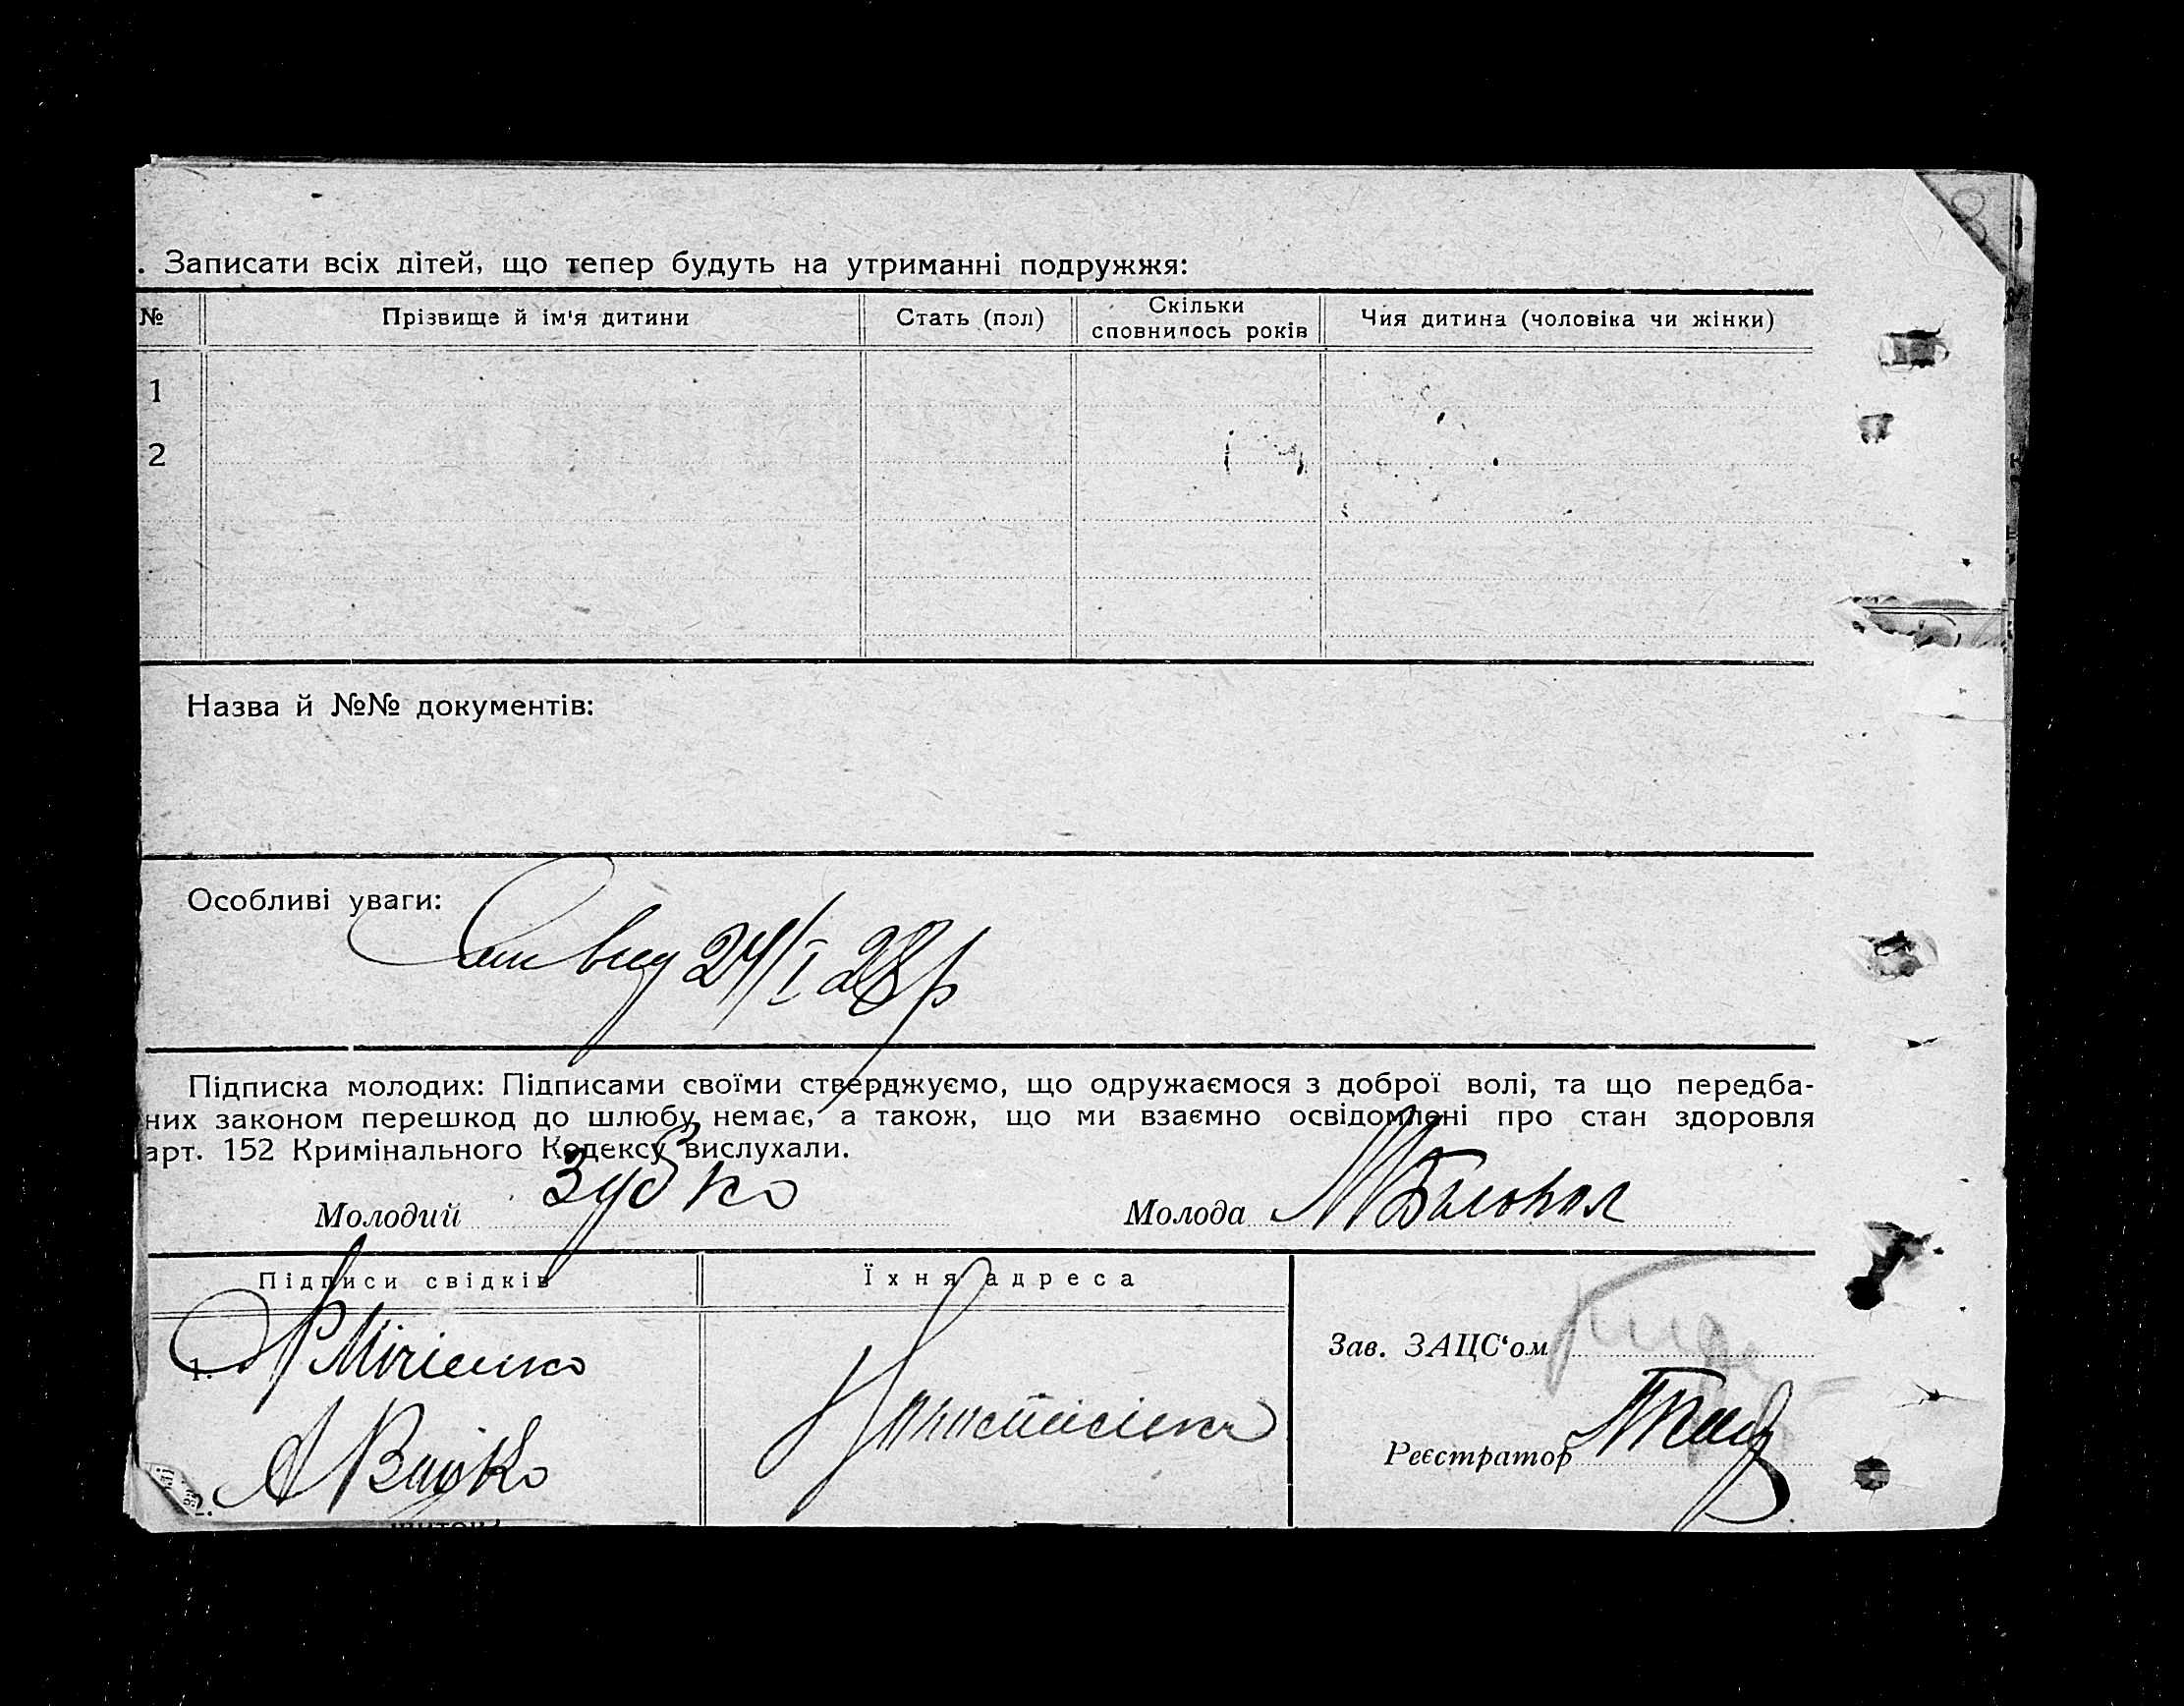 . Записати всіх дітей, що тепер будуть на утриманні подружжя:
№ Прізвище й ім'я дитини Стать (пол) Скільки сповнилось років Чия дитина (чоловіка чи жінки)
1
2
Назва й №№ документів:
Особливі уваги:
24/I 28 р
Підписка молодих: Підписами своїми стверджуємо, що одружаємося з доброї волі, та що передба-
них законом перешкод до шлюбу немає, а також, що ми взаємно освідомлені про стан здоровля
арт. 152 Кримінального Кодексу вислухали.
Молодий Зубко Молода
Підписи свідків Їхня адреса
Зав. ЗАЦС'ом
1.
Реєстратор
2.